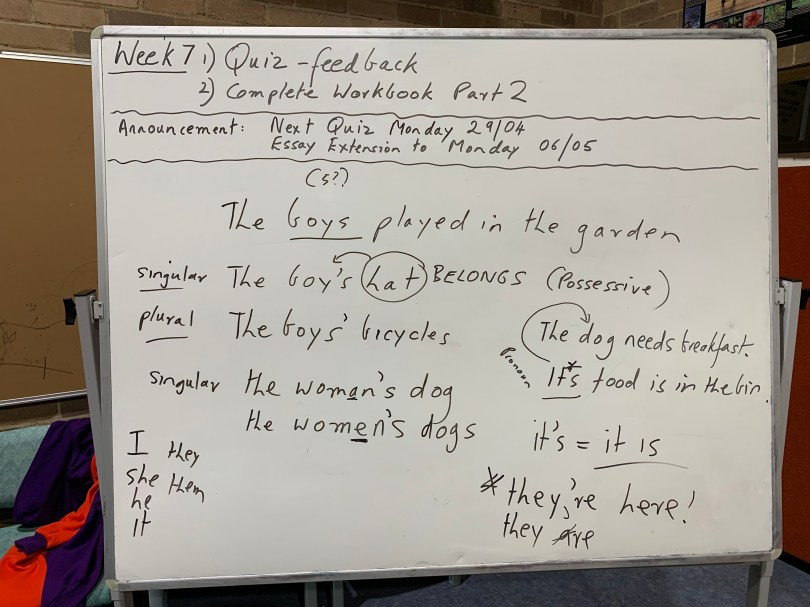 Week 7 1) Quiz - feedback
2) Complete Workbook Part 2
Announcement: Next Quiz Monday 29/04
Essay Extension to Monday 06/05
(s?)
The boys played in the garden
singular The boy's hat BELONGS (Possessive)
plural The boys' bicycles
The dog needs breakfast.
Pronoun
It*s food is in the bin.
singular the woman's dog
the women's dogs
it's = it is
I they
she them
he
it
* they're here!
they are